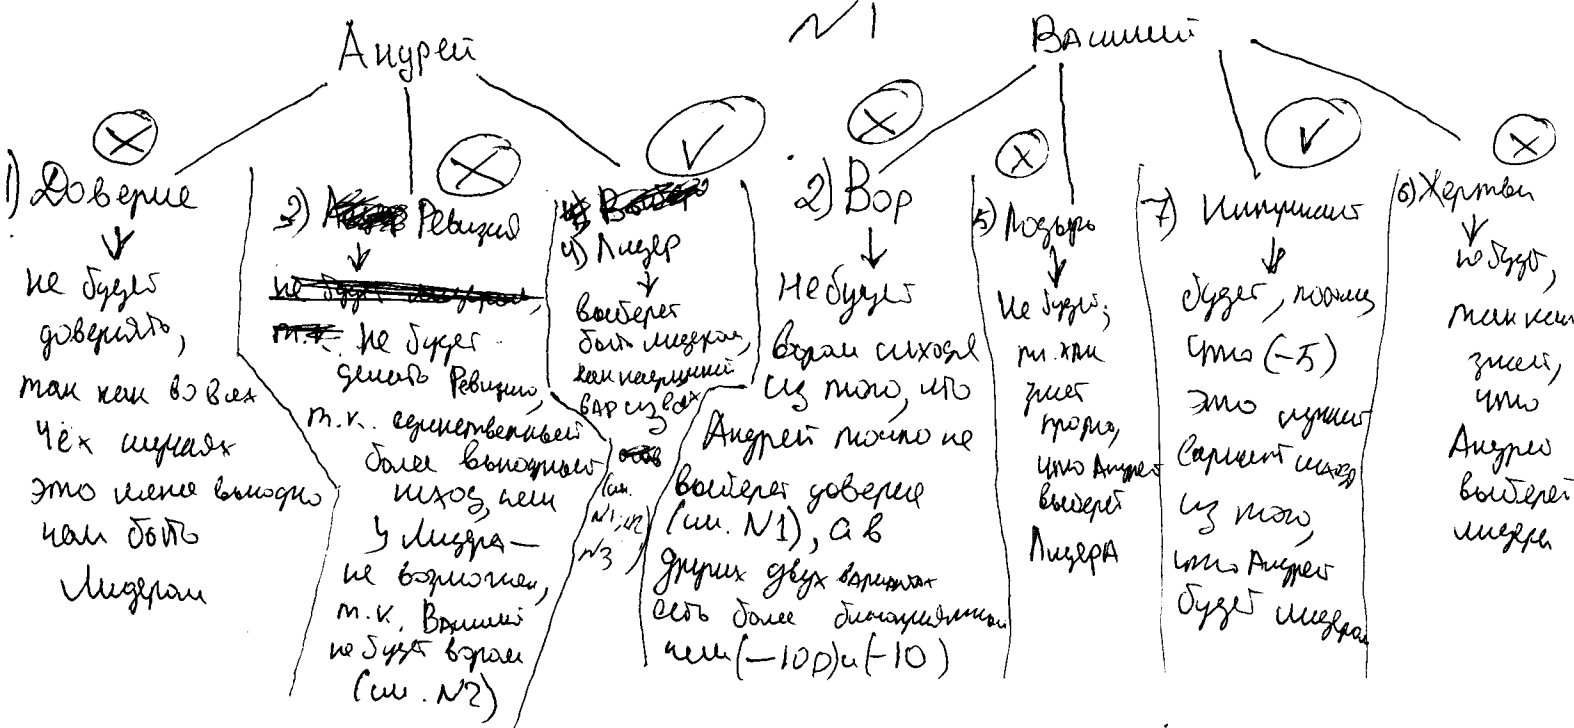 №1
Андрей
Василий
1) Доверие
не будет
доверять,
так как во всех
чёх случаях
это менее выгодно
чем быть
Лидером
3) Ревизия
не будет
делать Ревизию,
т.к. единственный
более выгодный
исход, чем
у Лидера —
не возможен,
т.к. Василий
не будет вором
(см. №2)
4) Лидер
выберет
быть лидером,
как наилучший
вар из всех
(см.
№1, №2
№3)
2) Вор
Не будет
вором исходя
из того, что
Андрей точно не
выберет доверие
(см. №1), а в
других двух вариантах
есть более благоприятные
чем (-100) и (-10)
5) Лодырь
Не будет,
т.к.
знает
,
что Андрей
выберет
Лидера
7)
будет, потому
что (-5)
это лучший
вариант исхода
из того,
что Андрей
будет лидером
6) Жертвой
не будет,
так как
знает,
что
Андрей
выберет
лидера